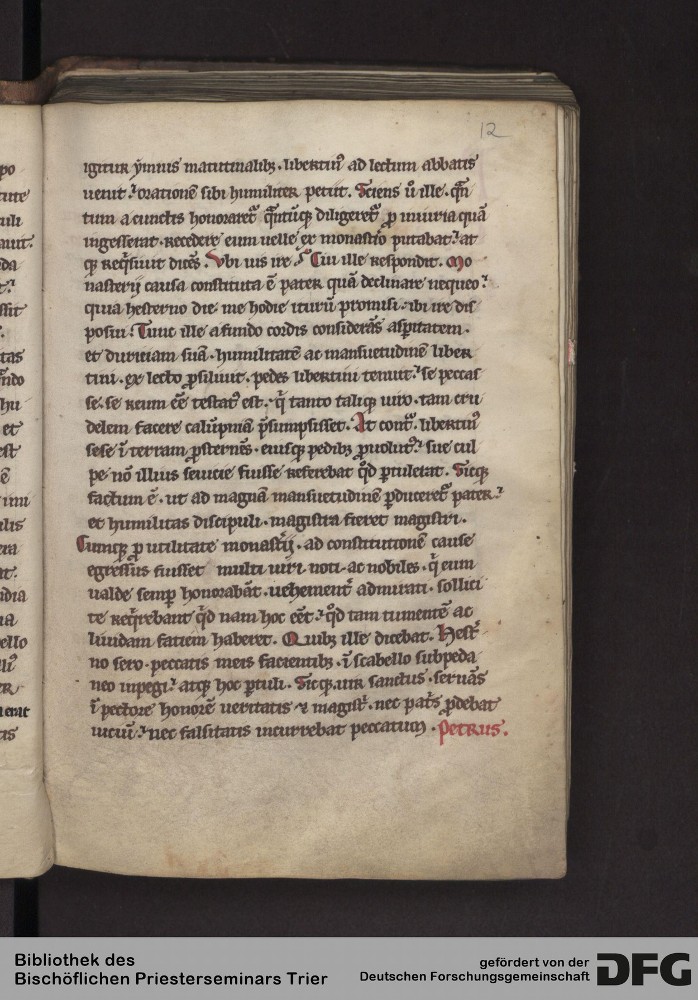 12
igitur ẏmnis matutinalibꝫ · libertinꝰ ad lectum abbatis
uenit · orationē sibi humiliter petiit . Sciens ů ille · qͣn
tum a cunctis honoraret᷑ qͣntūqꝫ diligeret᷑ ꝓ iniuria quā
ingesserat · recedere eum uelle ex monastͥo putabat · at
qꝫ reqͥsiuit dicēs . Vbi uis ire ? Cui ille respondit . Mo
nasterij causa constituta ē pater quā declinare nequeo ·
quia hesterno die · me hodie iturū promisi · ibi ire dis
posui . Tunc ille a fundo cordis considerās asꝑitatem ·
et duriciam suā · humilitatē ac mansuetudinē liber
tini · ex lecto ꝓsiliuit · pedes libertini tenuit · se peccas
se · se reum eē testatꝰ est · qͥ tanto taliqꝫ uiro · tam cru
delem facere calūpniā p̄sumpsisset . At contͣ · libertinꝰ
sese ī terram ꝓsternēs · eiusqꝫ pedibꝫ ꝓuolutꝰ · sue cul
pe nō illius seuicie fuisse referebat qͦd ꝑtulerat . Sicqꝫ
factum ē · ut ad magnā mansuetudinē ꝑduceret᷑ pater ·
et humilitas discipuli · magistra fieret magistri .
Cumqꝫ ꝓ utilitate monastͥij · ad constitutionē cause
egressus fuisset multi uiri noti · ac nobiles · qͥ eum
ualde semꝑ honorabāt · uehement᷑ admirati · sollici
te reqͥrebant qͥd nam hoc eēt · qͦd tam tumentē ac
liuidam faciem haberet . Quibꝫ ille dicebat . Hest᷑
no sero · peccatis meis facientibꝫ · ī scabello subpeda
neo inpegi · atqꝫ hoc ꝑtuli . Sicqꝫ uir sanctus · seruās
ī pectore honorē ueritatis ⁊ magistͥ · nec patͥs ꝓdebat
uiciū · nec falsitatis incurrebat peccatum . Petrus .
Bibliothek des
Bischöflichen Priesterseminars Trier
gefördert von der
Deutschen Forschungsgemeinschaft
DFG